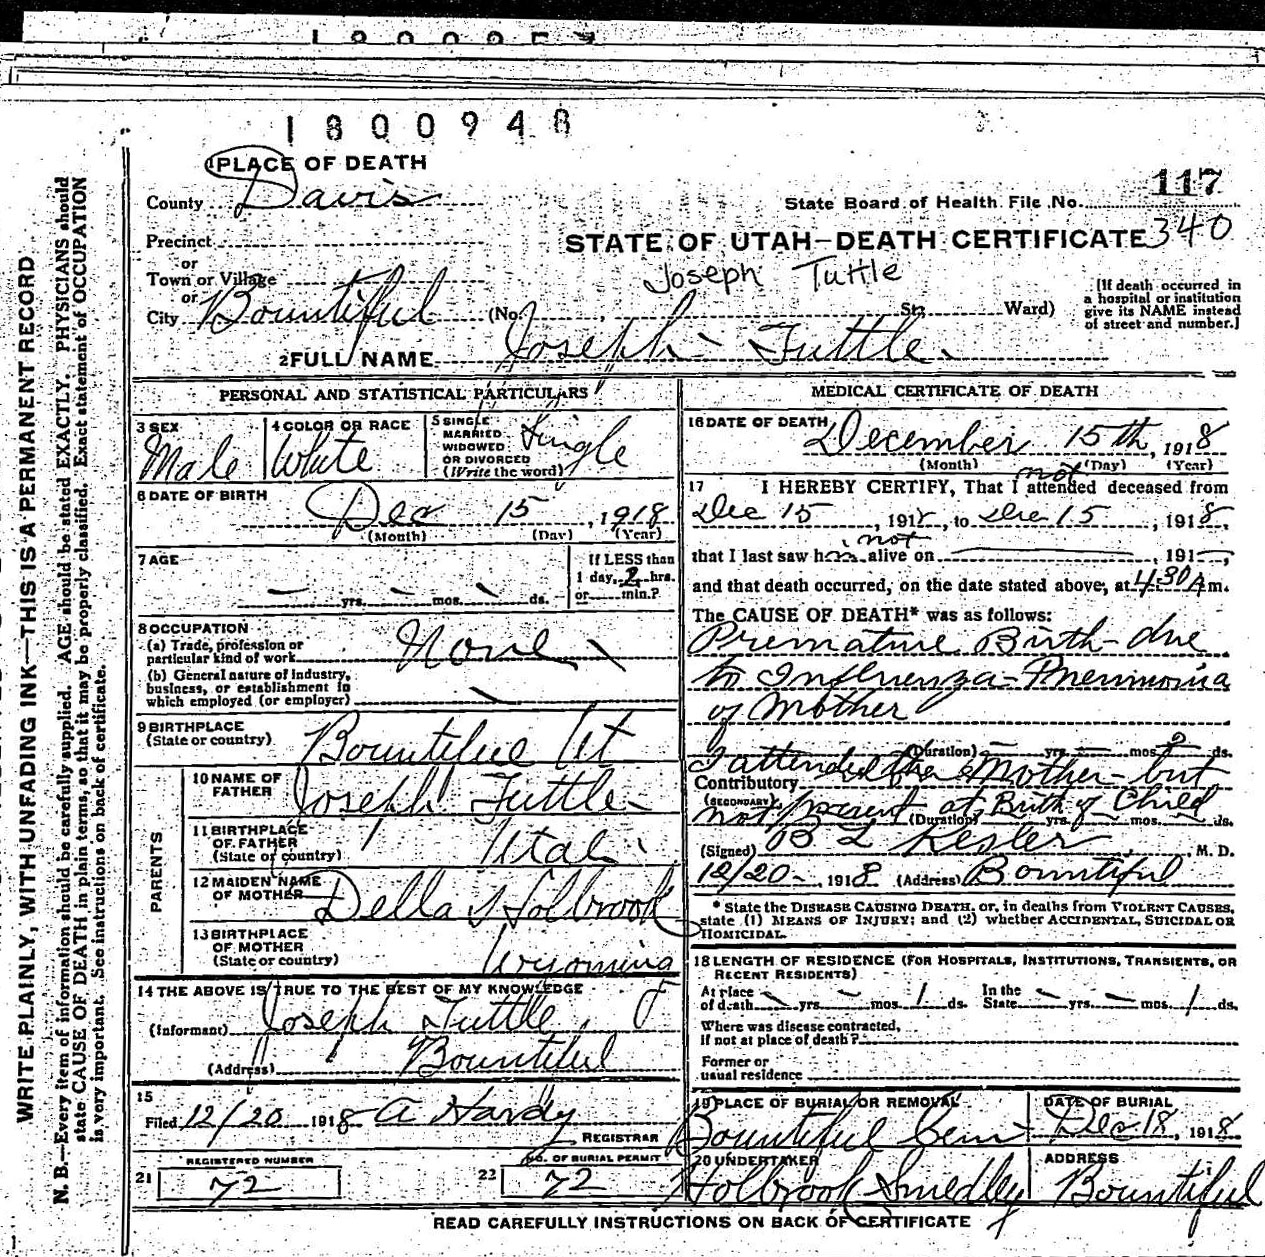 1800948
1 PLACE OF DEATH
117
County Davis
State Board of Health File No.
Precinct
STATE OF UTAH—DEATH CERTIFICATE 340
or
Joseph Tuttle
Town or Village
or
City Bountiful (No. , St; Ward)
[If death occurred in
a hospital or institution
give its NAME instead
of street and number.]
2 FULL NAME Joseph Tuttle
PERSONAL AND STATISTICAL PARTICULARS
3 SEX
Male
4 COLOR OR RACE
White
5 SINGLE
MARRIED
WIDOWED
OR DIVORCED
(Write the word)
Single
6 DATE OF BIRTH
Dec 15, 1918
(Month) (Day) (Year)
7 AGE
— yrs. — mos. — ds.
If LESS than
1 day, 2 hrs.
or min.?
8 OCCUPATION
(a) Trade, profession or
particular kind of work None
(b) General nature of industry,
business, or establishment in
which employed (or employer)
9 BIRTHPLACE
(State or country) Bountiful Ut
PARENTS
10 NAME OF
FATHER Joseph Tuttle
11 BIRTHPLACE
OF FATHER
(State or country) Utah
12 MAIDEN NAME
OF MOTHER Della Holbrook
13 BIRTHPLACE
OF MOTHER
(State or country) Wyoming
14 THE ABOVE IS TRUE TO THE BEST OF MY KNOWLEDGE
(Informant) Joseph Tuttle, F
(Address) Bountiful
15
Filed 12/20 1918 A Hardy
REGISTRAR
REGISTERED NUMBER
21 72
NO. OF BURIAL PERMIT
22 72
MEDICAL CERTIFICATE OF DEATH
16 DATE OF DEATH
December 15th, 1918
(Month) (Day) (Year)
not
17 I HEREBY CERTIFY, That I attended deceased from
Dec 15, 1918, to Dec 15, 1918,
not
that I last saw h alive on —, 191—,
and that death occurred, on the date stated above, at 4:30 A m.
The CAUSE OF DEATH* was as follows:
Premature Birth—due
to Influenza-Pneumonia
of Mother
(Duration) — yrs. — mos. ds.
I attended the Mother—but
Contributory
(SECONDARY)
not present at Birth of Child
(Duration) yrs. mos. ds.
(Signed) B L Kesler, M. D.
12/20-, 1918 (Address) Bountiful
* State the DISEASE CAUSING DEATH, or, in deaths from VIOLENT CAUSES,
state (1) MEANS OF INJURY; and (2) whether ACCIDENTAL, SUICIDAL OR
HOMICIDAL.
18 LENGTH OF RESIDENCE (FOR HOSPITALS, INSTITUTIONS, TRANSIENTS, OR
RECENT RESIDENTS)
At place
of death — yrs. — mos. 1 ds.
In the
State — yrs. — mos. 1 ds.
Where was disease contracted,
if not at place of death?
Former or
usual residence
19 PLACE OF BURIAL OR REMOVAL
Bountiful Cem
DATE OF BURIAL
Dec. 18, 1918
20 UNDERTAKER
Holbrook Smedley
ADDRESS
Bountiful
READ CAREFULLY INSTRUCTIONS ON BACK OF CERTIFICATE
WRITE PLAINLY, WITH UNFADING INK—THIS IS A PERMANENT RECORD
N. B.—Every item of information should be carefully supplied. AGE should be stated EXACTLY. PHYSICIANS should
state CAUSE OF DEATH in plain terms, so that it may be properly classified. Exact statement of OCCUPATION
is very important. See instructions on back of certificate.